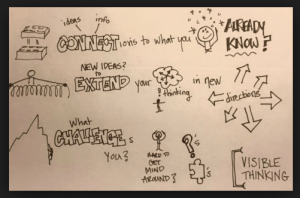 ideas info
CONNECTions to what you ALREADY KNOW?
NEW IDEAS?
to
EXTEND your thinking in new directions
What
CHALLENGEs you?
HARD TO
GET
MIND
AROUND?
?'s
's
VISIBLE
THINKING